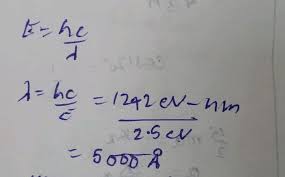 E = hc/λ
λ = hc/E = 1242 eV-nm / 2.5 eV
= 5000 Å